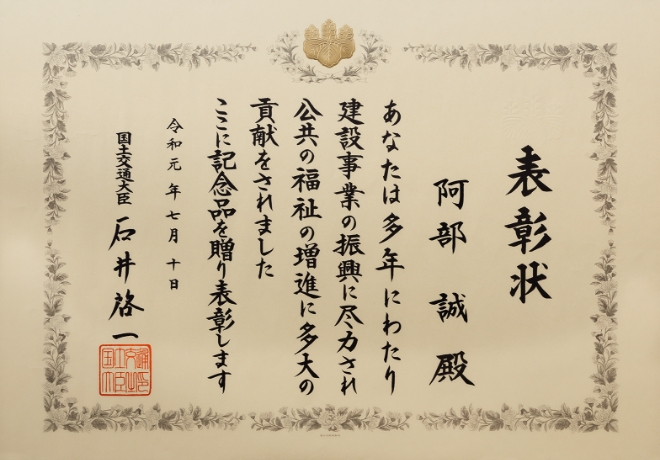 表彰状
阿部 誠 殿
あなたは多年にわたり
建設事業の振興に尽力され
公共の福祉の増進に多大の
貢献をされました
ここに記念品を贈り表彰します
令和元年七月十日
国土交通大臣 石井啓一